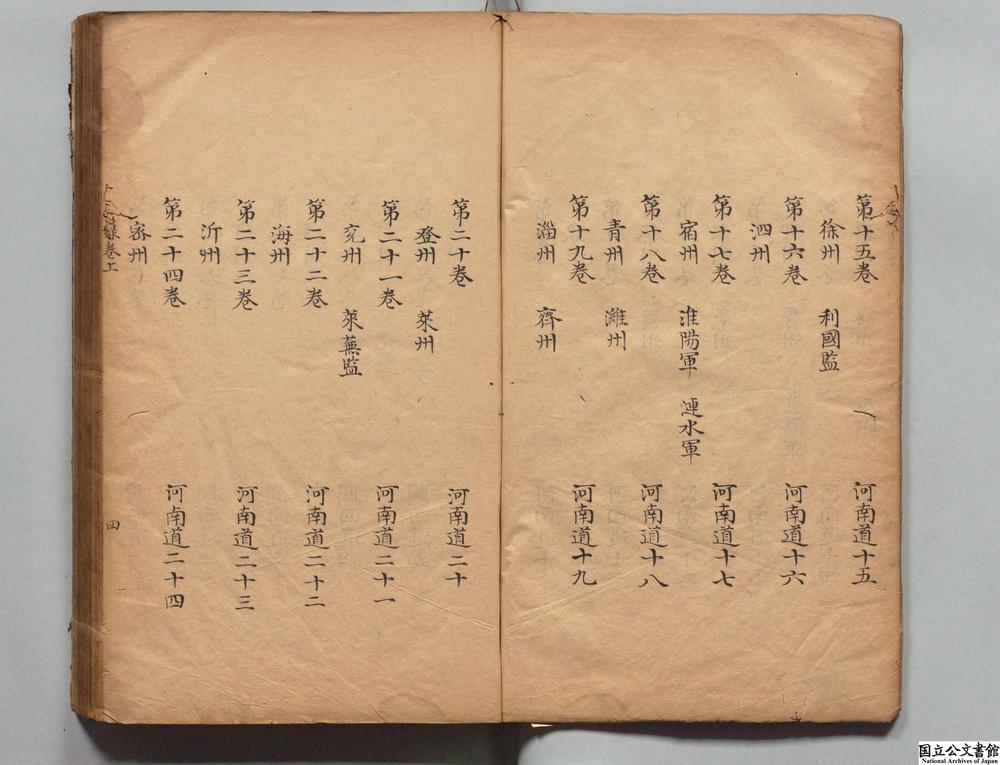 第十五巻　河南道十五
徐州　利國監
第十六巻　河南道十六
泗州
第十七巻　河南道十七
宿州　淮陽軍　漣水軍
第十八巻　河南道十八
青州　濰州
第十九巻　河南道十九
淄州　齊州
第二十巻　河南道二十
登州　萊州
第二十一巻　河南道二十一
兗州　萊蕪監
第二十二巻　河南道二十二
海州
第二十三巻　河南道二十三
沂州
第二十四巻　河南道二十四
密州
録巻上
四
国立公文書館
National Archives of Japan